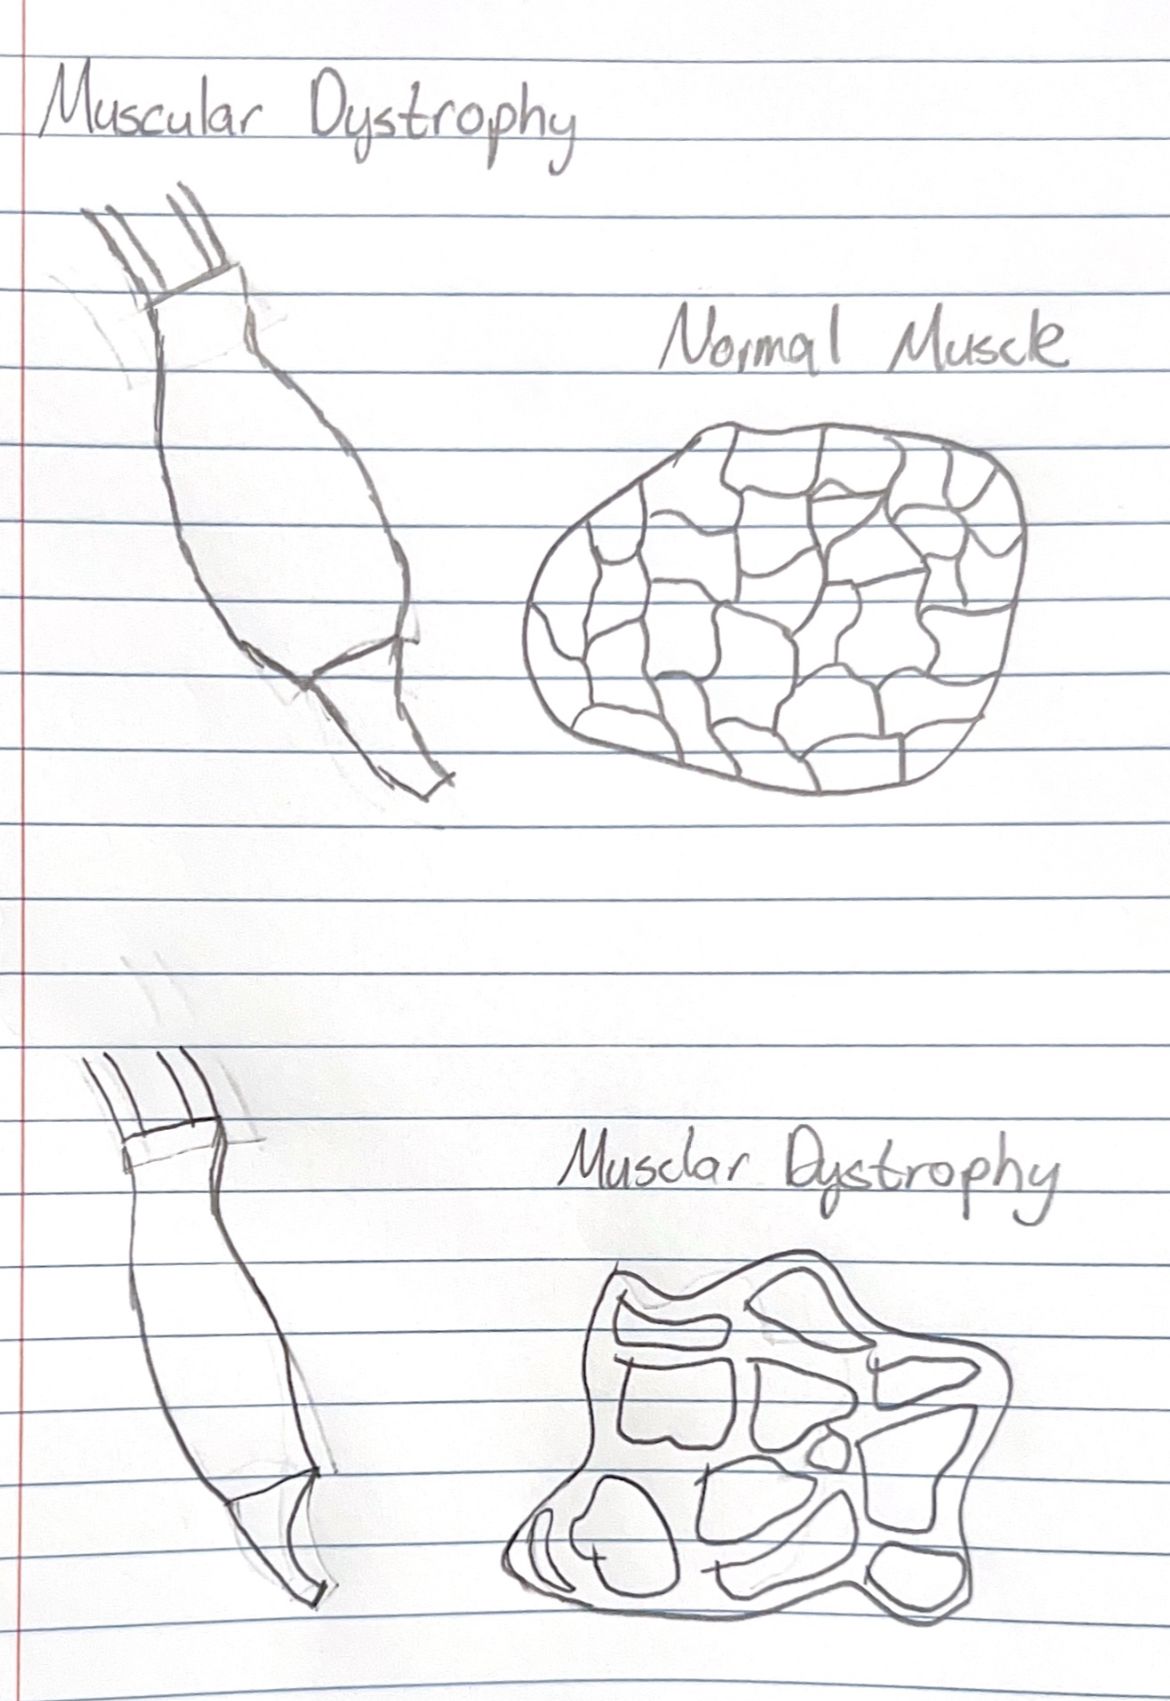 Muscular Dystrophy
Normal Muscle
Musclar Dystrophy